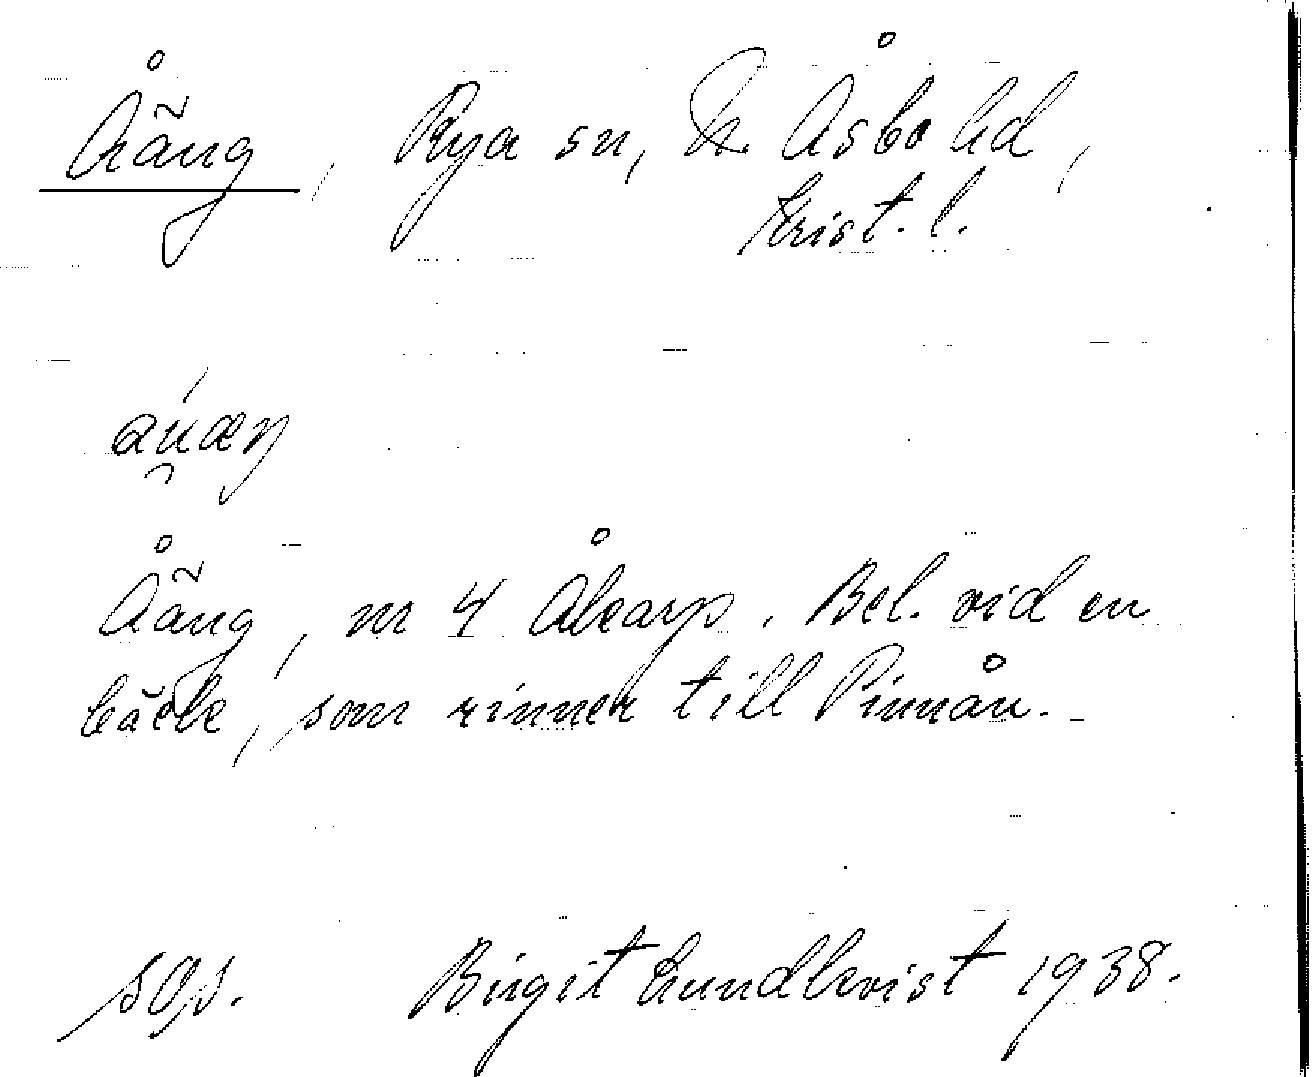 Åäng, Rya sn, N. Åsbo hd,
Krist. l.
Åäng, m 4 Åkarp. Bel. vid en
bäck, som rinner till Pinnån.
Birgit Lundkvist 1938.